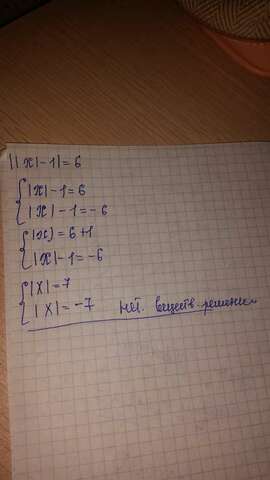 ||x|-1|=6
|x|-1=6
|x|-1=-6
|x)=6+1
|x|-1=-6
|x|=7
|x|=-7 нет. веществ. решений